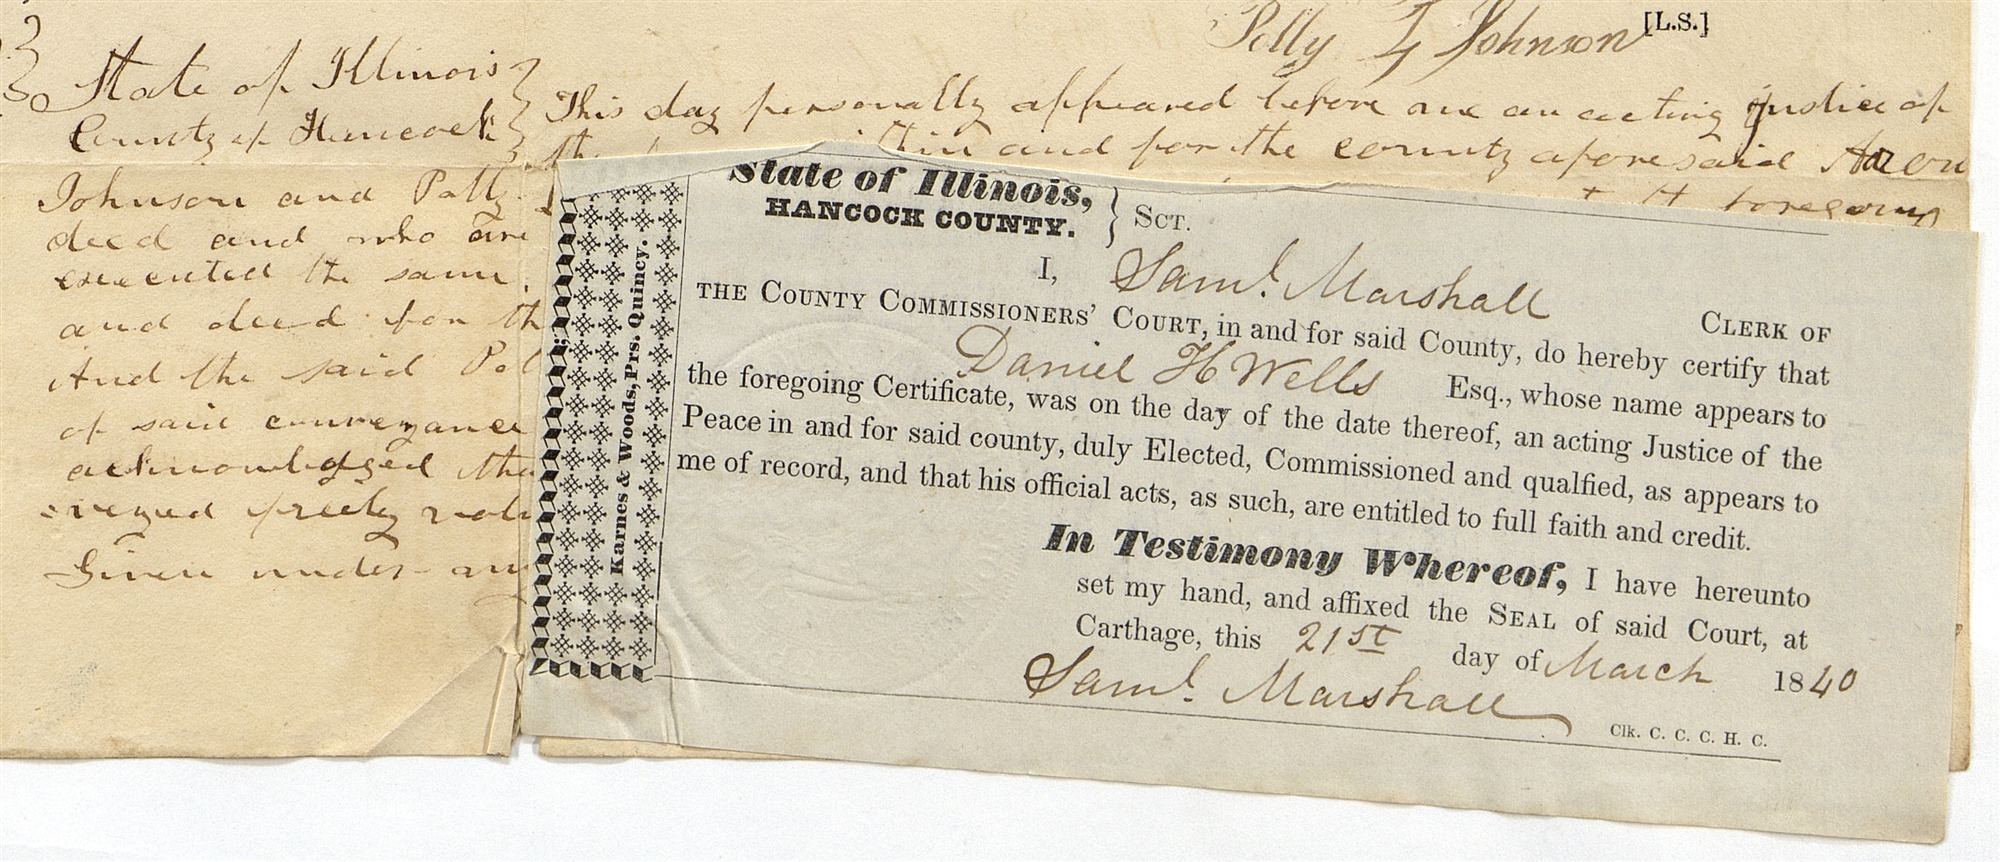 Polly Z Johnson [L.S.]
State of Illinois
County of Hancock
This day personally appeared before me an acting Justice of
and for the county aforesaid Aaron
Johnson and Polly
foregoing
deed and who are
executed the same
and deed for th
And the said Pol
of said conveyance
acknowledged tha
Given under
State of Illinois,
HANCOCK COUNTY.
} SCT.
I, Saml. Marshall CLERK OF
THE COUNTY COMMISSIONERS' COURT, in and for said County, do hereby certify that
Daniel H Wells Esq., whose name appears to
the foregoing Certificate, was on the day of the date thereof, an acting Justice of the
Peace in and for said county, duly Elected, Commissioned and qualfied, as appears to
me of record, and that his official acts, as such, are entitled to full faith and credit.
In Testimony Whereof, I have hereunto
set my hand, and affixed the SEAL of said Court, at
Carthage, this 21st day of March 1840
Saml. Marshall
Clk. C. C. C. H. C.
Karnes & Woods, Prs. Quincy.